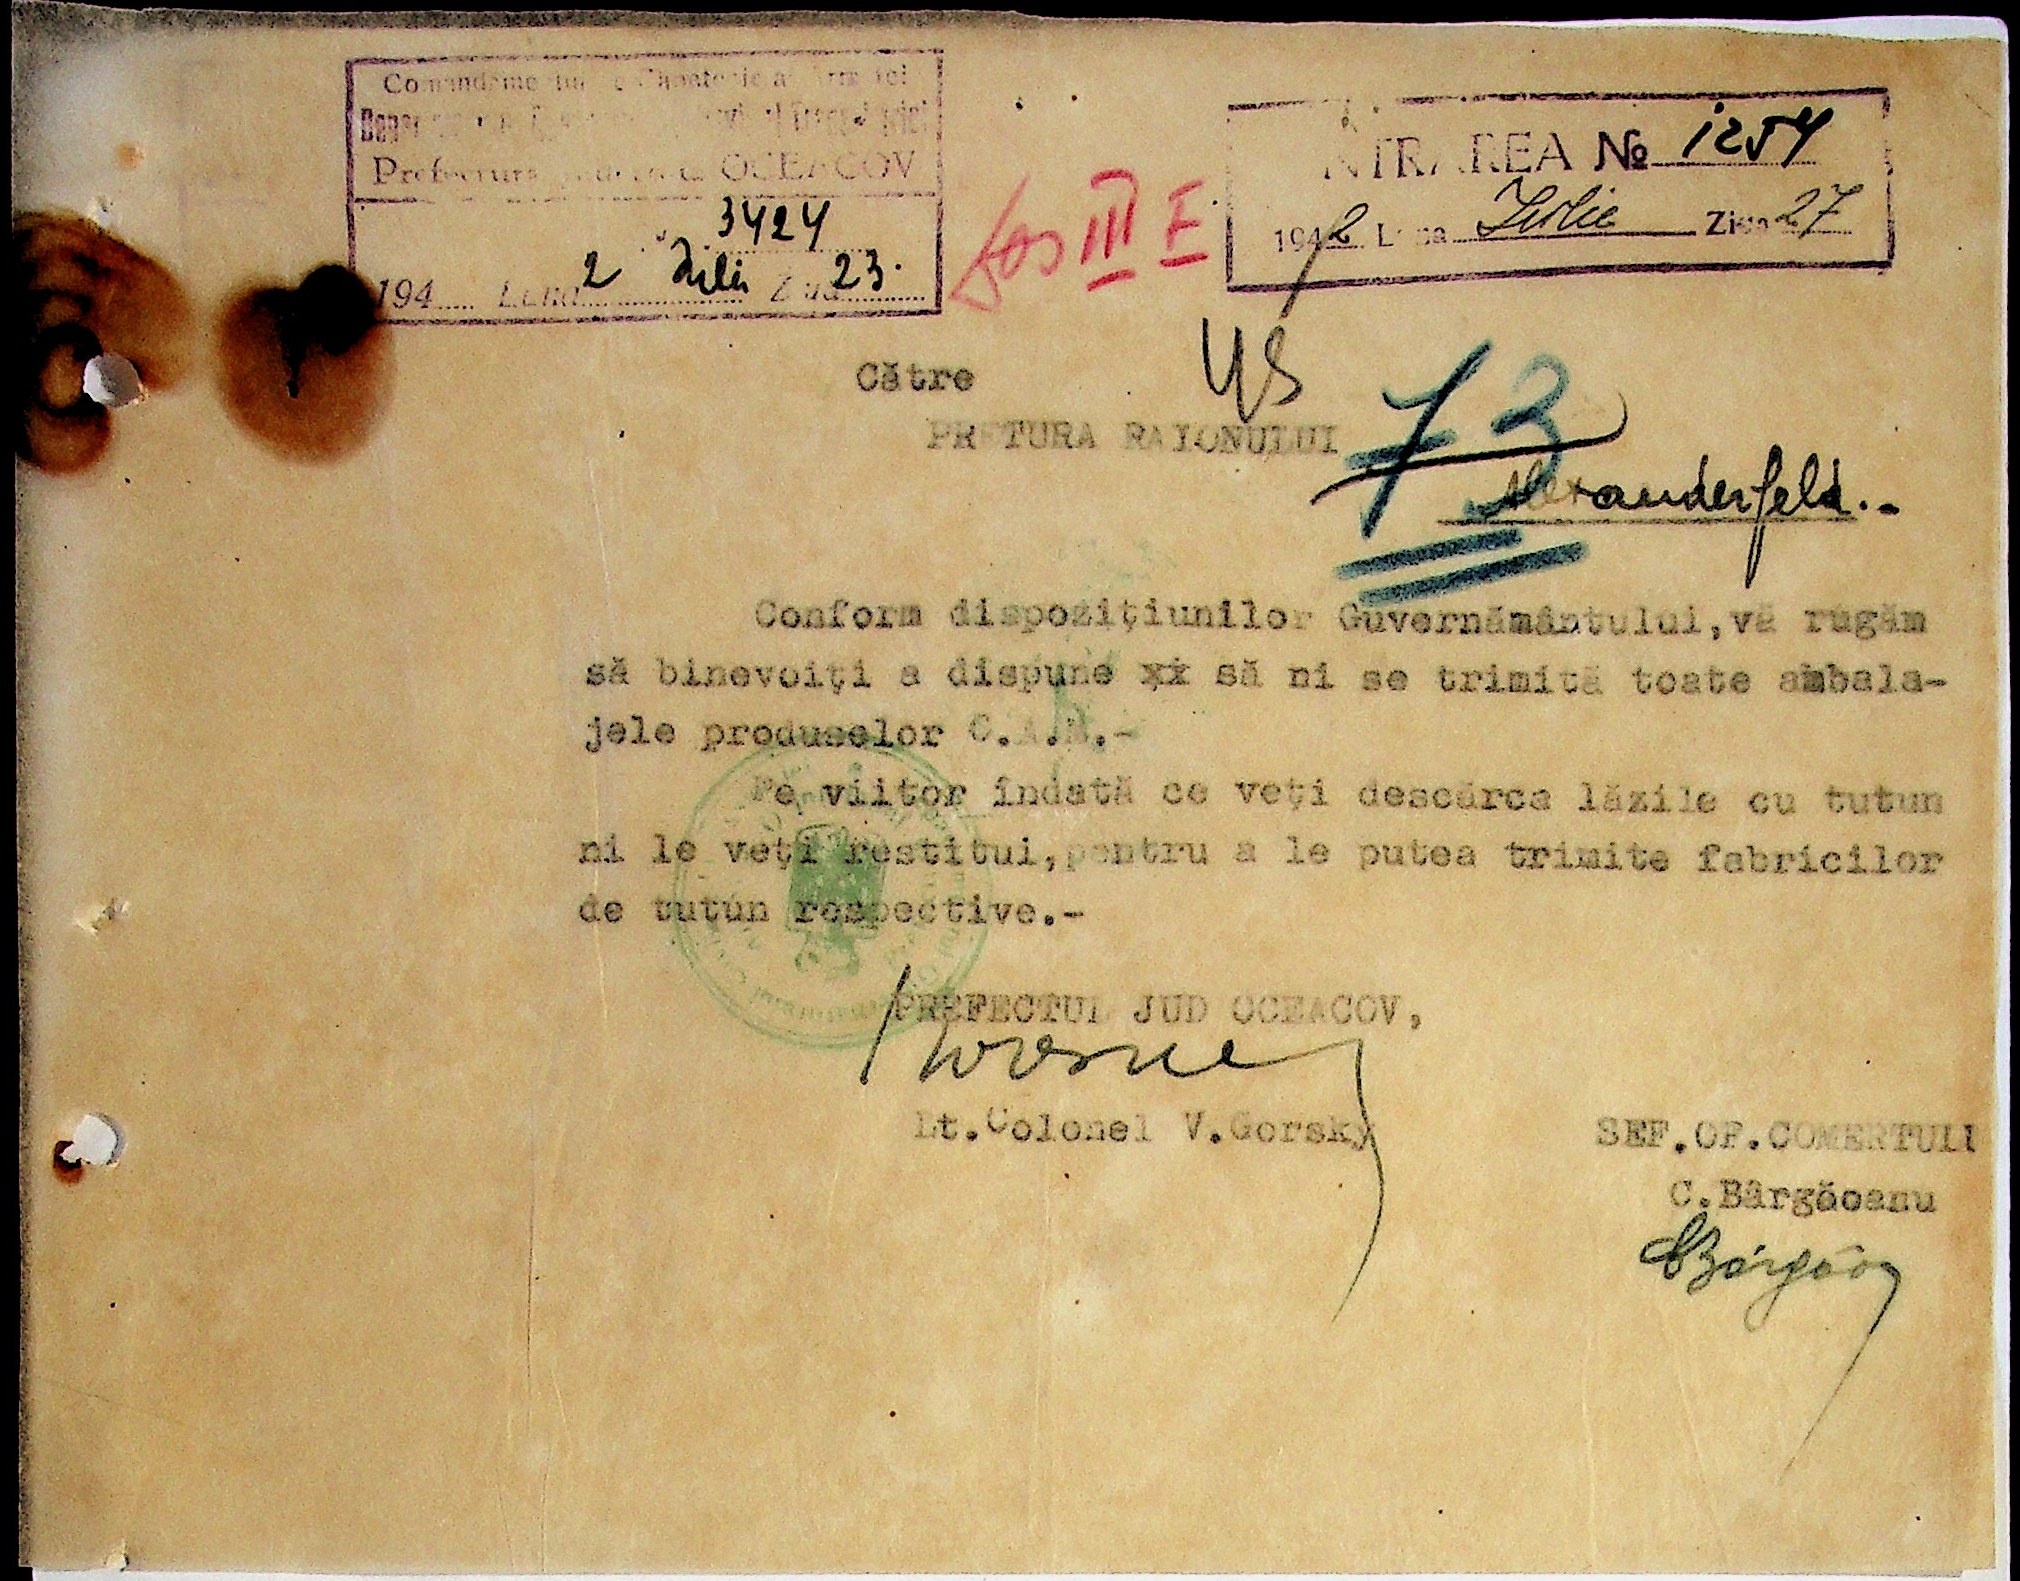 Prefectura OCEACOV
3424
194 Luna 2 Iulie Ziua 23.
dos III E
INTRAREA No 1254
1942 Luna Iulie Ziua 27
Către
PRETURA RAIONULUI
73
Alexanderfeld.-
Conform dispoziţiunilor Guvernământului,vă rugăm
să binevoiţi a dispune xx să ni se trimită toate ambala-
jele produselor C.A.M.-
Pe viitor îndată ce veţi descărca lăzile cu tutun
ni le veţi restitui,pentru a le putea trimite fabricilor
de tutun respective.-
PREFECTUL JUD OCEACOV,
Lt.Colonel V.Gorsky
SEF.OF.COMERTULI
C.Bârgăoanu